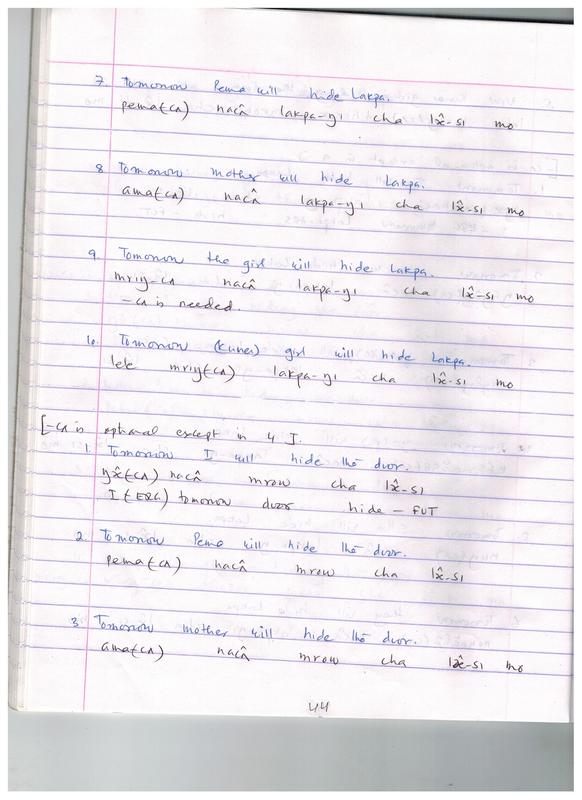 7. Tomorrow Pema will hide Lakpa.
pema(cʌ) nacʌ̂ lakpa-yı cha lx̂-sı mo
8 Tomorrow mother will hide Lakpa.
ama(cʌ) nacʌ̂ lakpa-yı cha lx̂-sı mo
9. Tomorrow the girl will hide Lakpa.
mrıy-cʌ nacʌ̂ lakpa-yı cha lx̂-sı mo
-cʌ is needed.
Tomorrow girl will hide Lakpa.
mrıy(cʌ) lakpa-yı cha lx̂-sı mo
[-cʌ is optional except in 4 I.
1. Tomorrow I will hide the door.
yx̂(cʌ) nacʌ̂ mrow cha lx̂-sı
I (ERG) tomorrow door hide - FUT
2. Tomorrow Pema will hide the door.
pema(cʌ) nacʌ̂ mrow cha lx̂-sı
3 Tomorrow mother will hide the door.
ama(cʌ) nacʌ̂ mrow cha lx̂-sı mo
44